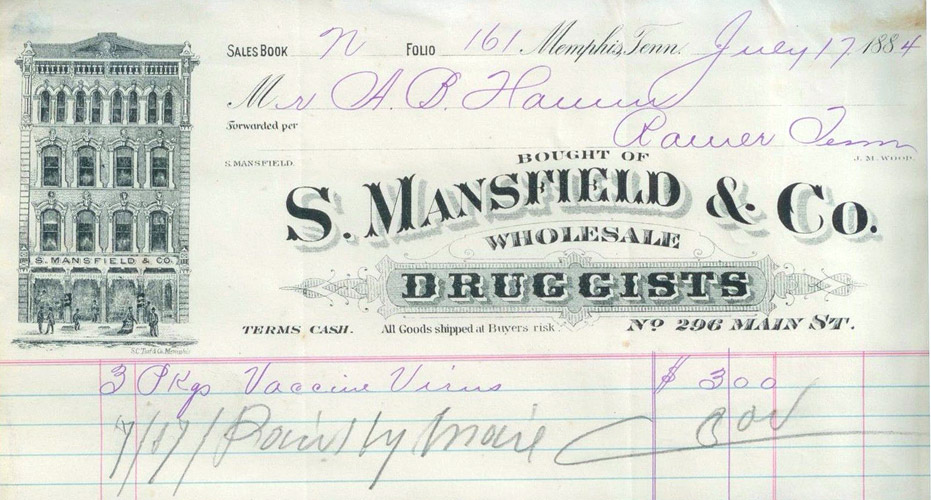 SALES BOOK N FOLIO 161 Memphis, Tenn. July 17 1884
Mr A. B. Hamm
Forwarded per
Ramer Tenn
S. MANSFIELD. J. M. WOOD.
BOUGHT OF
S. MANSFIELD & CO.
WHOLESALE
DRUGGISTS
S. MANSFIELD & CO.
TERMS CASH. All Goods shipped at Buyers risk. No 296 MAIN ST.
3 Pkgs Vaccine Virus $ 3 00
7/17/ Paid by mail 300